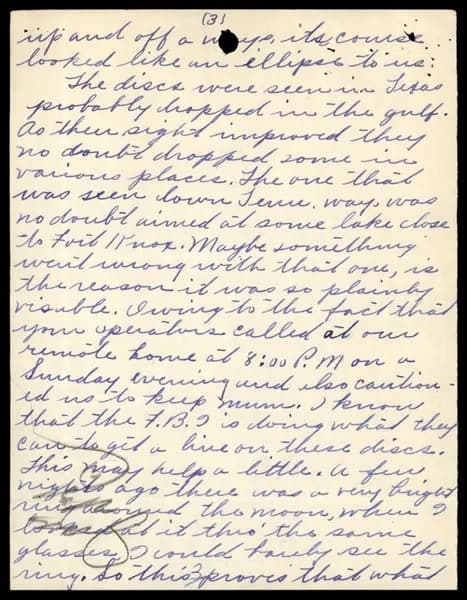 (3)
up and off a ways, its course
looked like an ellipse to us.
The discs were seen in Texas
probably dropped in the gulf.
As their sight improved they
no doubt dropped some in
various places. The one that
was seen down Tenn. way, was
no doubt aimed at some lake close
to Fort Knox. Maybe something
went wrong with that one, is
the reason it was so plainly
visable. Owing to the fact that
your operators called at our
remote home at 8:00 P.M on a
Sunday evening and also caution-
ed us to keep mum. I know
that the F.B.I is doing what they
can to get a line on these discs.
This may help a little. A few
nights ago there was a very bright
ring around the moon, when I
looked at it thro' the same
glasses, I could barely see the
ring. So this proves that what